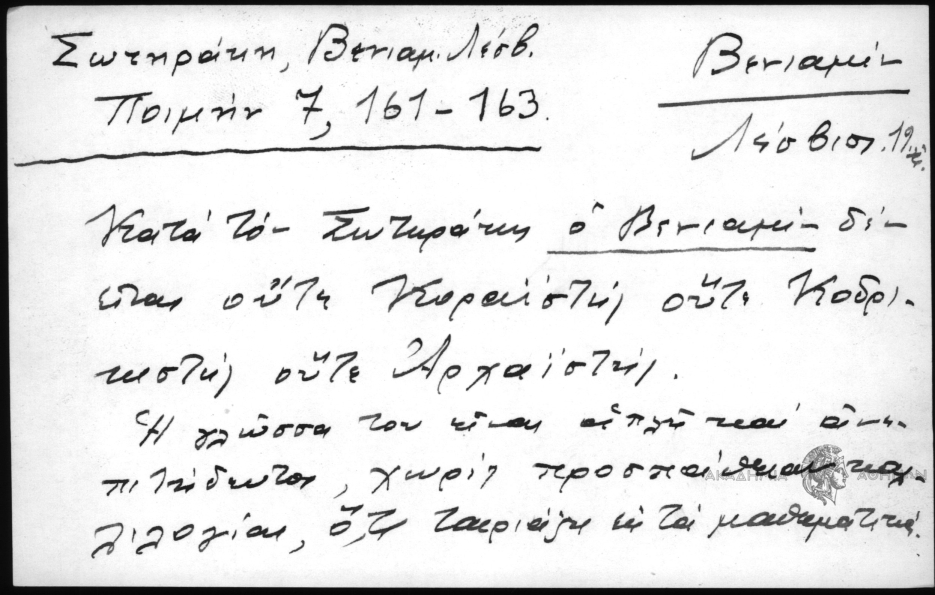 Σωτηράκη, Βενιαμ. Λέσβ.
Ποιμήν 7, 161-163.
Βενιαμίν
Λέσβιος. 19
Κατά τόν Σωτηράκη ὁ Βενιαμίν δέν
εἶναι οὔτε Κοραϊστής οὔτε Κοδρι-
κιστής οὔτε Ἀρχαϊστής.
Ἡ γλῶσσα του εἶναι ἁπλῆ καί ἀνε-
πιτήδευτος, χωρίς προσπάθειαν καλ-
λιλογίας, ὅ,τι ταιριάζει εἰς τά μαθηματικά.
ΑΚΑΔΗΜΙΑ ΑΘΗΝΩΝ